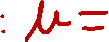 : μ =